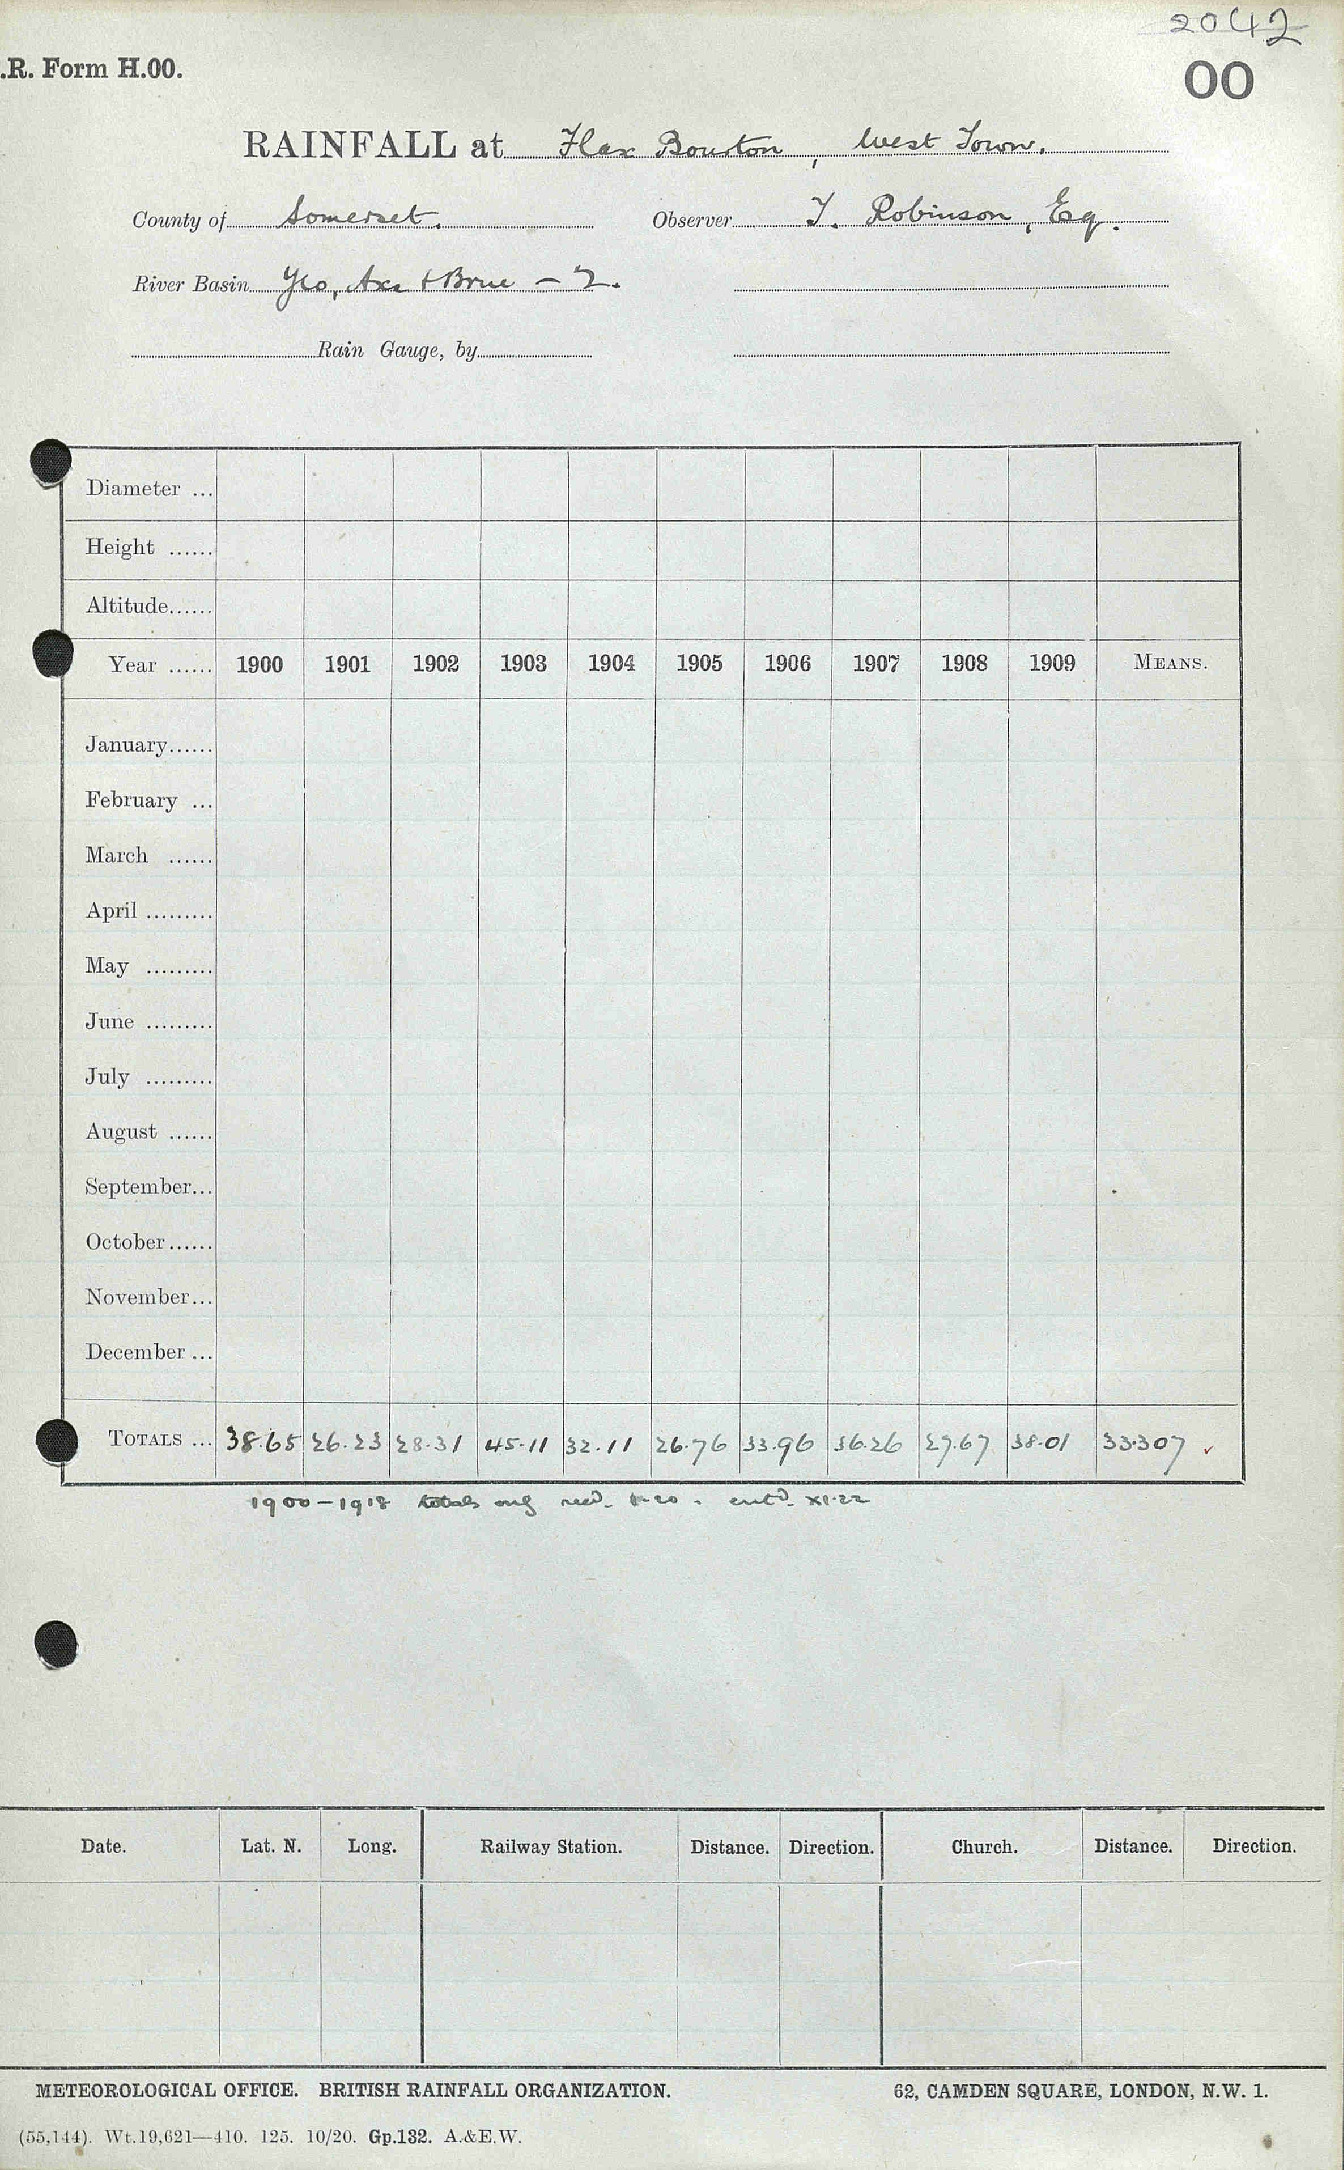 2042
.R. Form H.00.
00
RAINFALL at Flax Bourton, West Town.
County of Somerset. Observer T. Robinson, Esq.
River Basin Yeo, Axe & Brue - 2.
Rain Gauge, by
Diameter ...
Height ......
Altitude......
Year ...... 1900 1901 1902 1903 1904 1905 1906 1907 1908 1909 MEANS.
January......
February ...
March ......
April .........
May .........
June .........
July .........
August ......
September...
October......
November...
December ...
TOTALS ... 38.65 26.23 28.31 45.11 32.11 26.76 33.96 36.26 27.67 38.01 33.307 ✓
1900-1918 totals only recd. -20. entd. XI.22
Date. Lat. N. Long. Railway Station. Distance. Direction. Church. Distance. Direction.
METEOROLOGICAL OFFICE. BRITISH RAINFALL ORGANIZATION. 62, CAMDEN SQUARE, LONDON, N.W. 1.
(55,144). Wt.19,621—410. 125. 10/20. Gp.132. A.&E.W.